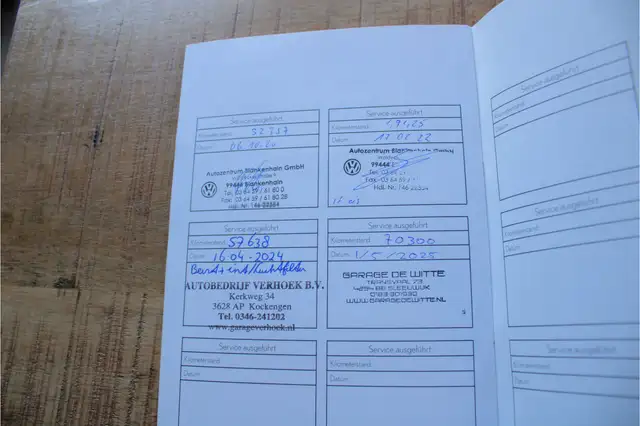 Service ausgeführt
Kilometerstand:
Datum:
Autozentrum Blankenhain GmbH
99444 Blankenhain
Tel. 03 64 59 / 61 60 0
Fax: 03 64 59 / 61 60 28
Hdl.-Nr: 146
Service ausgeführt
Kilometerstand:
Datum: 17 02 22
Autozentrum
99444
Tel. 03
Fax: 03 64
Hdl.-Nr: 146
Service ausgeführt
Kilometerstand: 57638
Datum: 16-04-2024
AUTOBEDRIJF VERHOEK B.V.
Kerkweg 34
3628 AP Kockengen
Tel. 0346-241202
www.garageverhoek.nl
Service ausgeführt
Kilometerstand: 70300
Datum: 1/5/2025
GARAGE DE WITTE
TRANSVAAL 73
SLEEUWIJK
WWW.GARAGEDEWITTE.NL
Service ausgeführt
Kilometerstand:
Datum:
Service ausgeführt
Kilometerstand:
Datum:
Service ausgeführt
Kilometerstand:
Datum:
Service ausgeführt
Kilometerstand:
Datum:
Service ausgeführt
Kilometerstand:
Datum: